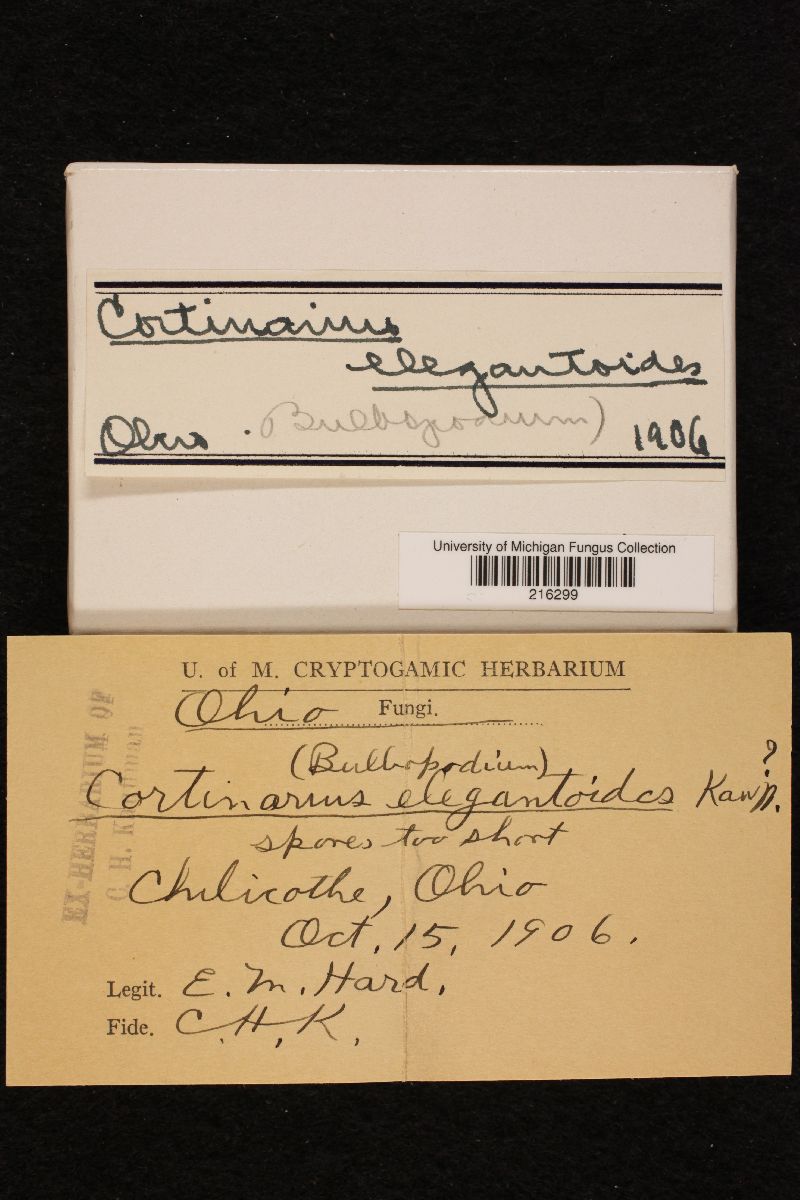 Cortinarius
elegantoides
Ohio . Bulbopodium) 1906
University of Michigan Fungus Collection
216299
U. of M. CRYPTOGAMIC HERBARIUM
Ohio Fungi.
(Bulbopodium)
Cortinarius elegantoides Kauff. ?
spores too short
Chilicothe, Ohio
Oct. 15, 1906.
Legit. E. M. Hard.
Fide. C. H. K.
EX-HERBARIUM OF
C. H. Kauffman